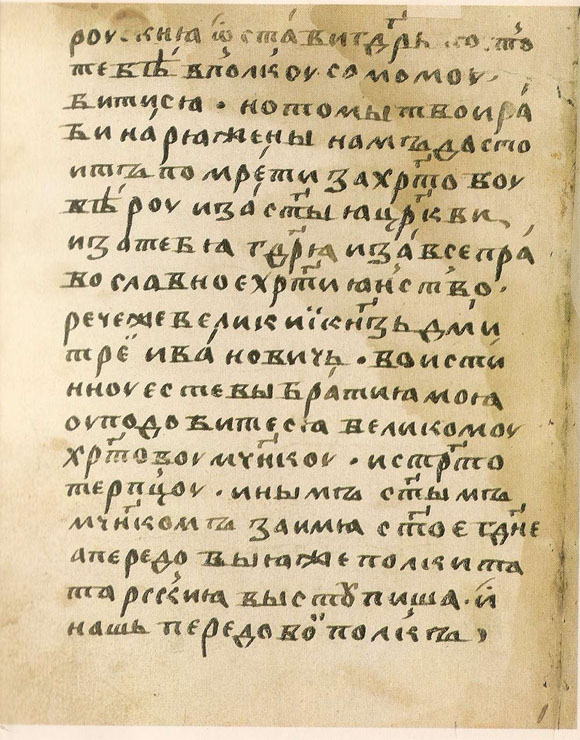 роускиꙗ ѿста́ви гдⷭ҇рь то
тебѣ в̾полкоу самомоу·
битисꙗ · но томы твои ра́
би на́рꙗжены намъ досто
итъ помре́ти за хрⷭ҇тову
вѣ́роу и за́ ст҃ы ꙗ цр҃кви
и за тебꙗ гдⷭ҇рꙗ и за́ все пра́
во славное хрⷭ҇тиꙗн̾ство·
рече же великиї кн҃зь дми́
треї ива́нович̾ь · во исти́
нноу есте вы бра́тиꙗ моꙗ
оуподобитесꙗ великомоу
хрⷭ҇товоу мчн҃коу · и стрⷭ҇то
терпцоу · и нымъ ст҃ымъ
мчн҃комъ за имꙗ ст҃ое гдⷭ҇не
а передовыꙗ же полки та
тарскиꙗ выступиша · и҆
нашь передово́ї полкъ,